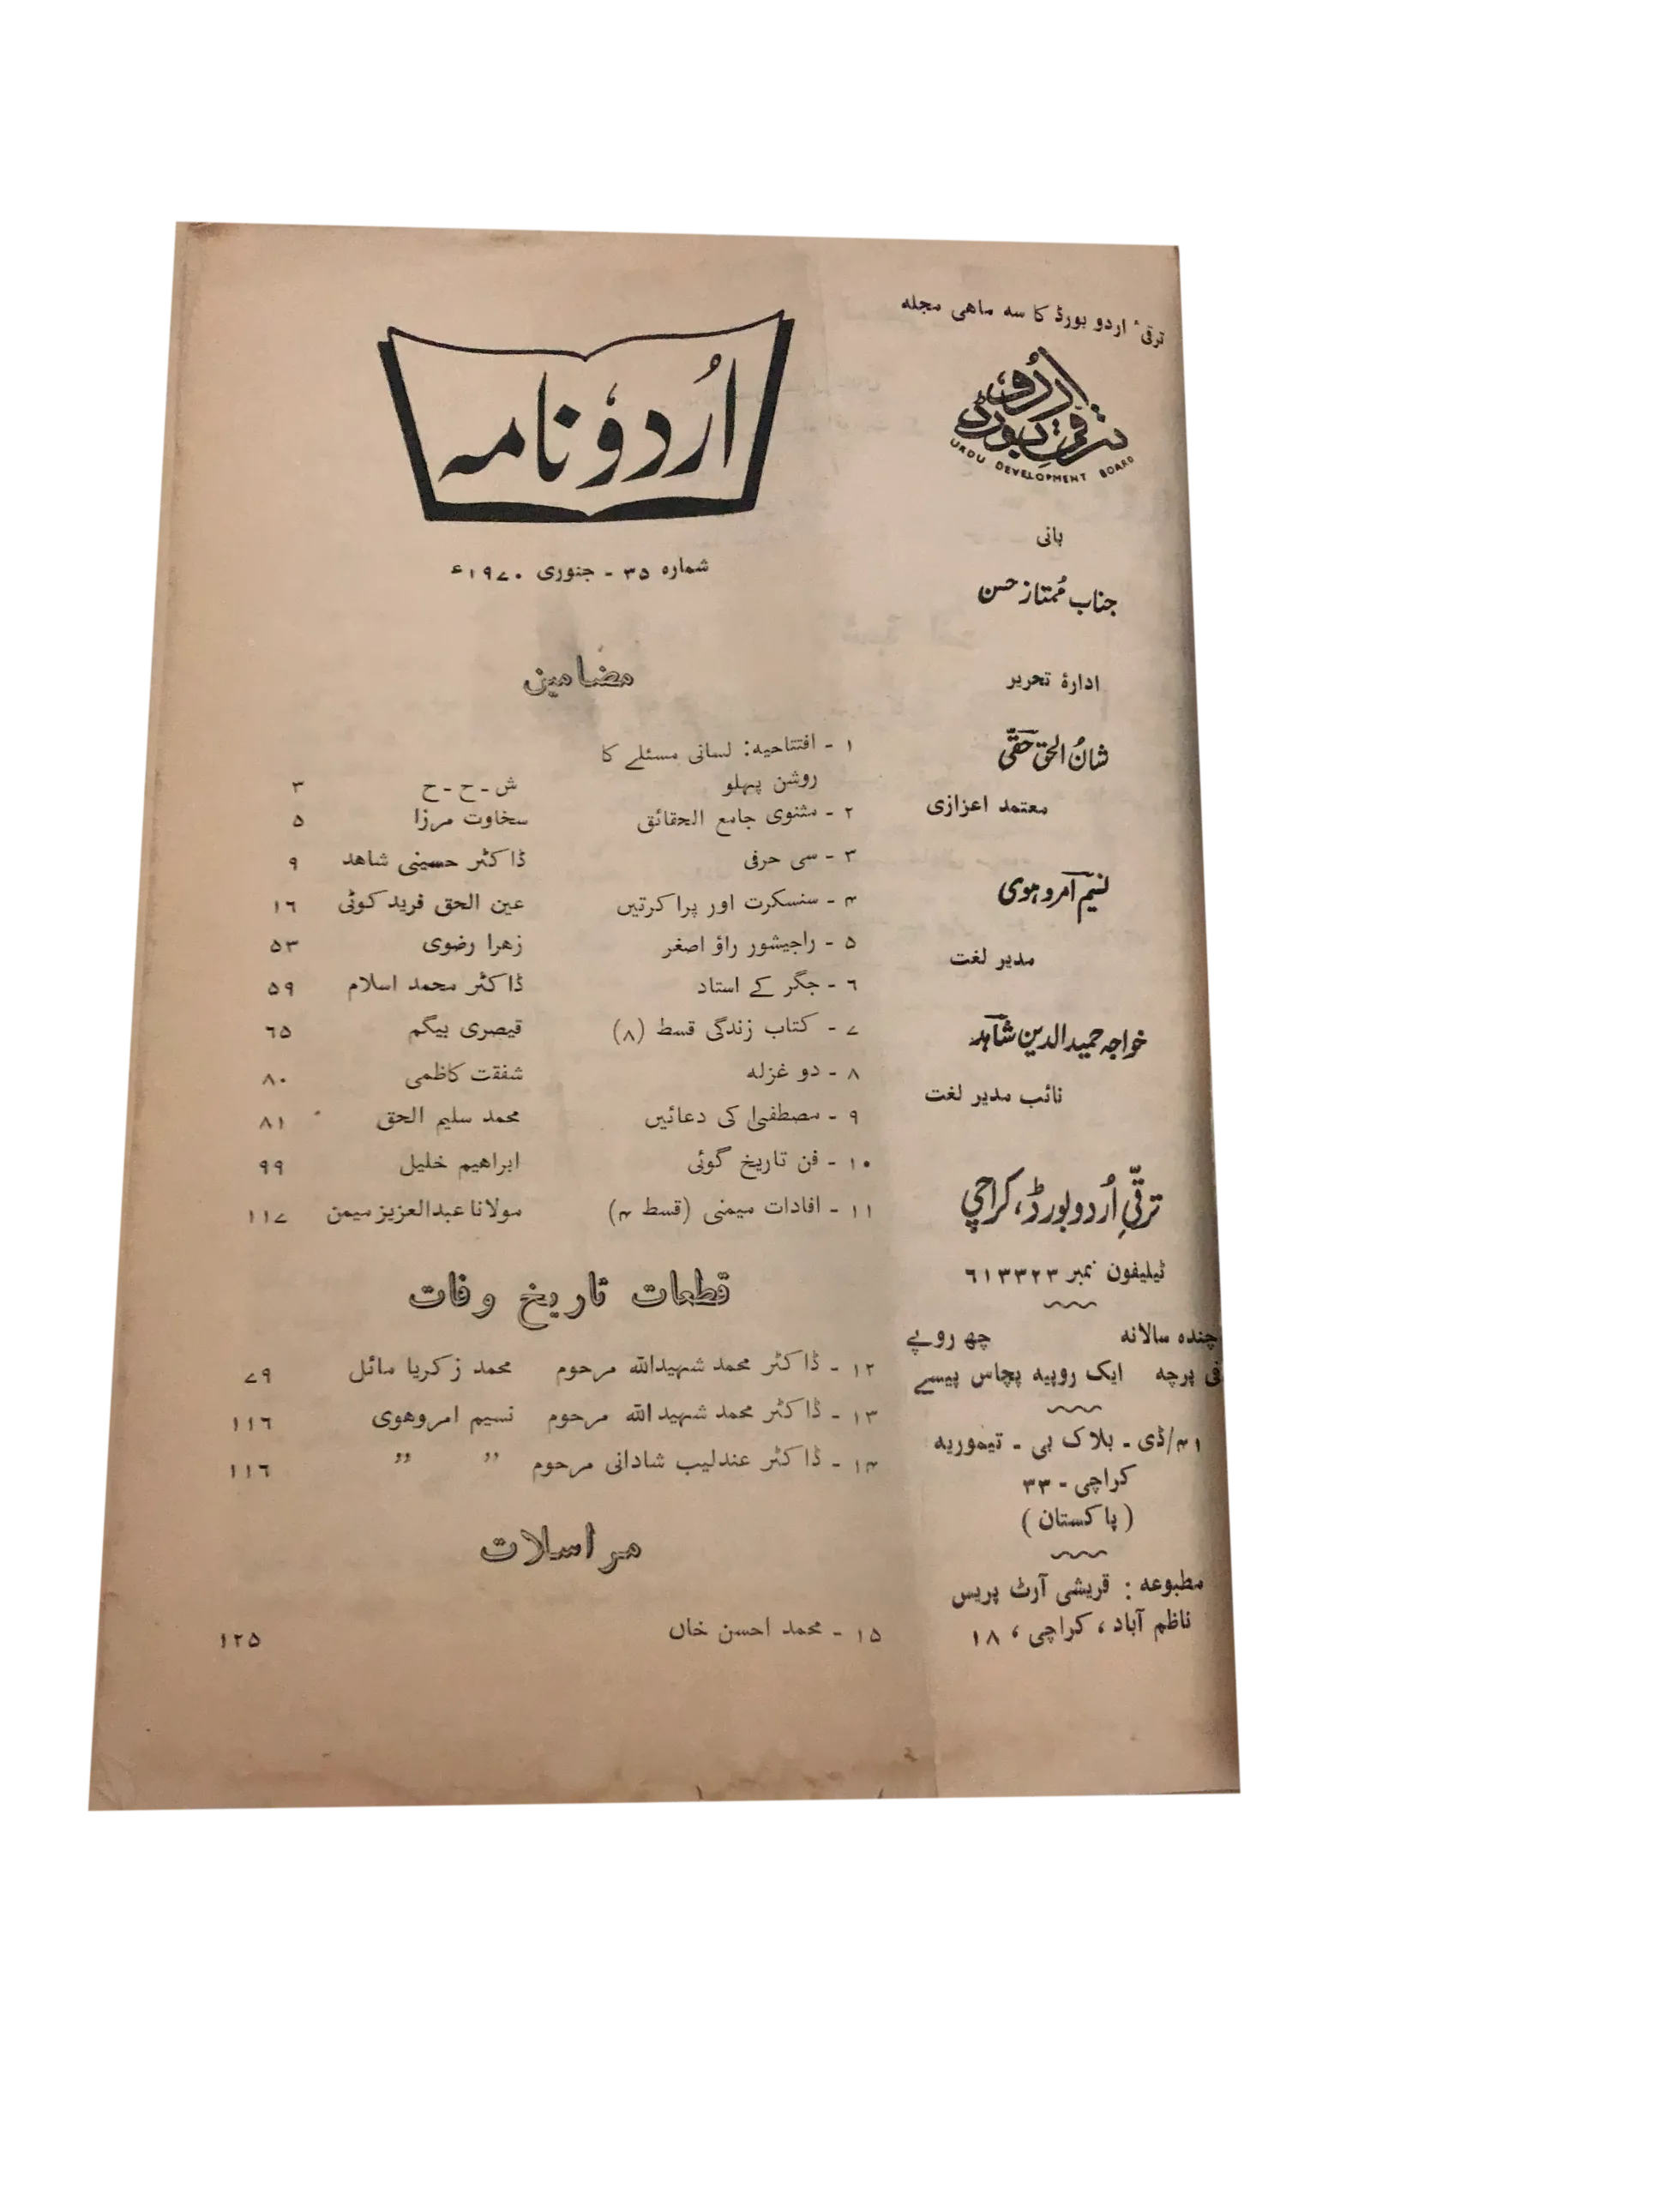 ترقیٴ اردو بورڈ کا سہ ماھی مجلہ
ترقی اردو بورڈ
URDU DEVELOPMENT BOARD
بانی
جناب مُمتاز حسن
ادارۂ تحریر
شانُ الحق حقّی
معتمد اعزازی
نسیم امروہوی
مدیر لغت
خواجہ حمید الدین شاہد
نائب مدیر لغت
ترقّیِ اُردو بورڈ، کراچی
ٹیلیفون نمبر ٦١٣٣٢٣
چندہ سالانہ چھ روپے
فی پرچہ ایک روپیہ پچاس پیسے
۴۱/ڈی - بلاک بی - تیموریہ
کراچی - ۳۳
(پاکستان)
مطبوعہ : قریشی آرٹ پریس
ناظم آباد ، کراچی ، ۱۸
اُردو نامہ
شمارہ ۳۵ - جنوری ۱۹۷۰ء
مضامین
۱ - افتتاحیہ: لسانی مسئلے کا
روشن پہلو ش - ح - ح ۳
۲ - مثنوی جامع الحقائق سخاوت مرزا ۵
۳ - سی حرفی ڈاکٹر حسینی شاھد ۹
۴ - سنسکرت اور پراکرتیں عین الحق فرید کوٹی ١٦
۵ - راجیشور راؤ اصغر زھرا رضوی ۵۳
٦ - جگر کے استاد ڈاکٹر محمد اسلام ۵۹
۷ - کتاب زندگی قسط (۸) قیصری بیگم ٦۵
۸ - دو غزلہ شفقت کاظمی ۸۰
۹ - مصطفیٰ کی دعائیں محمد سلیم الحق ۸۱
۱۰ - فن تاریخ گوئی ابراھیم خلیل ۹۹
۱۱ - افادات میمنی (قسط ۴) مولانا عبدالعزیز میمن ۱۱۷
قطعات تاریخ وفات
۱۲ - ڈاکٹر محمد شہیداللہ مرحوم محمد زکریا مائل ۷۹
۱۳ - ڈاکٹر محمد شہید اللہ مرحوم نسیم امروھوی ١١٦
۱۴ - ڈاکٹر عندلیب شادانی مرحوم ,, ,, ١١٦
مراسلات
۱۵ - محمد احسن خاں ۱۲۵